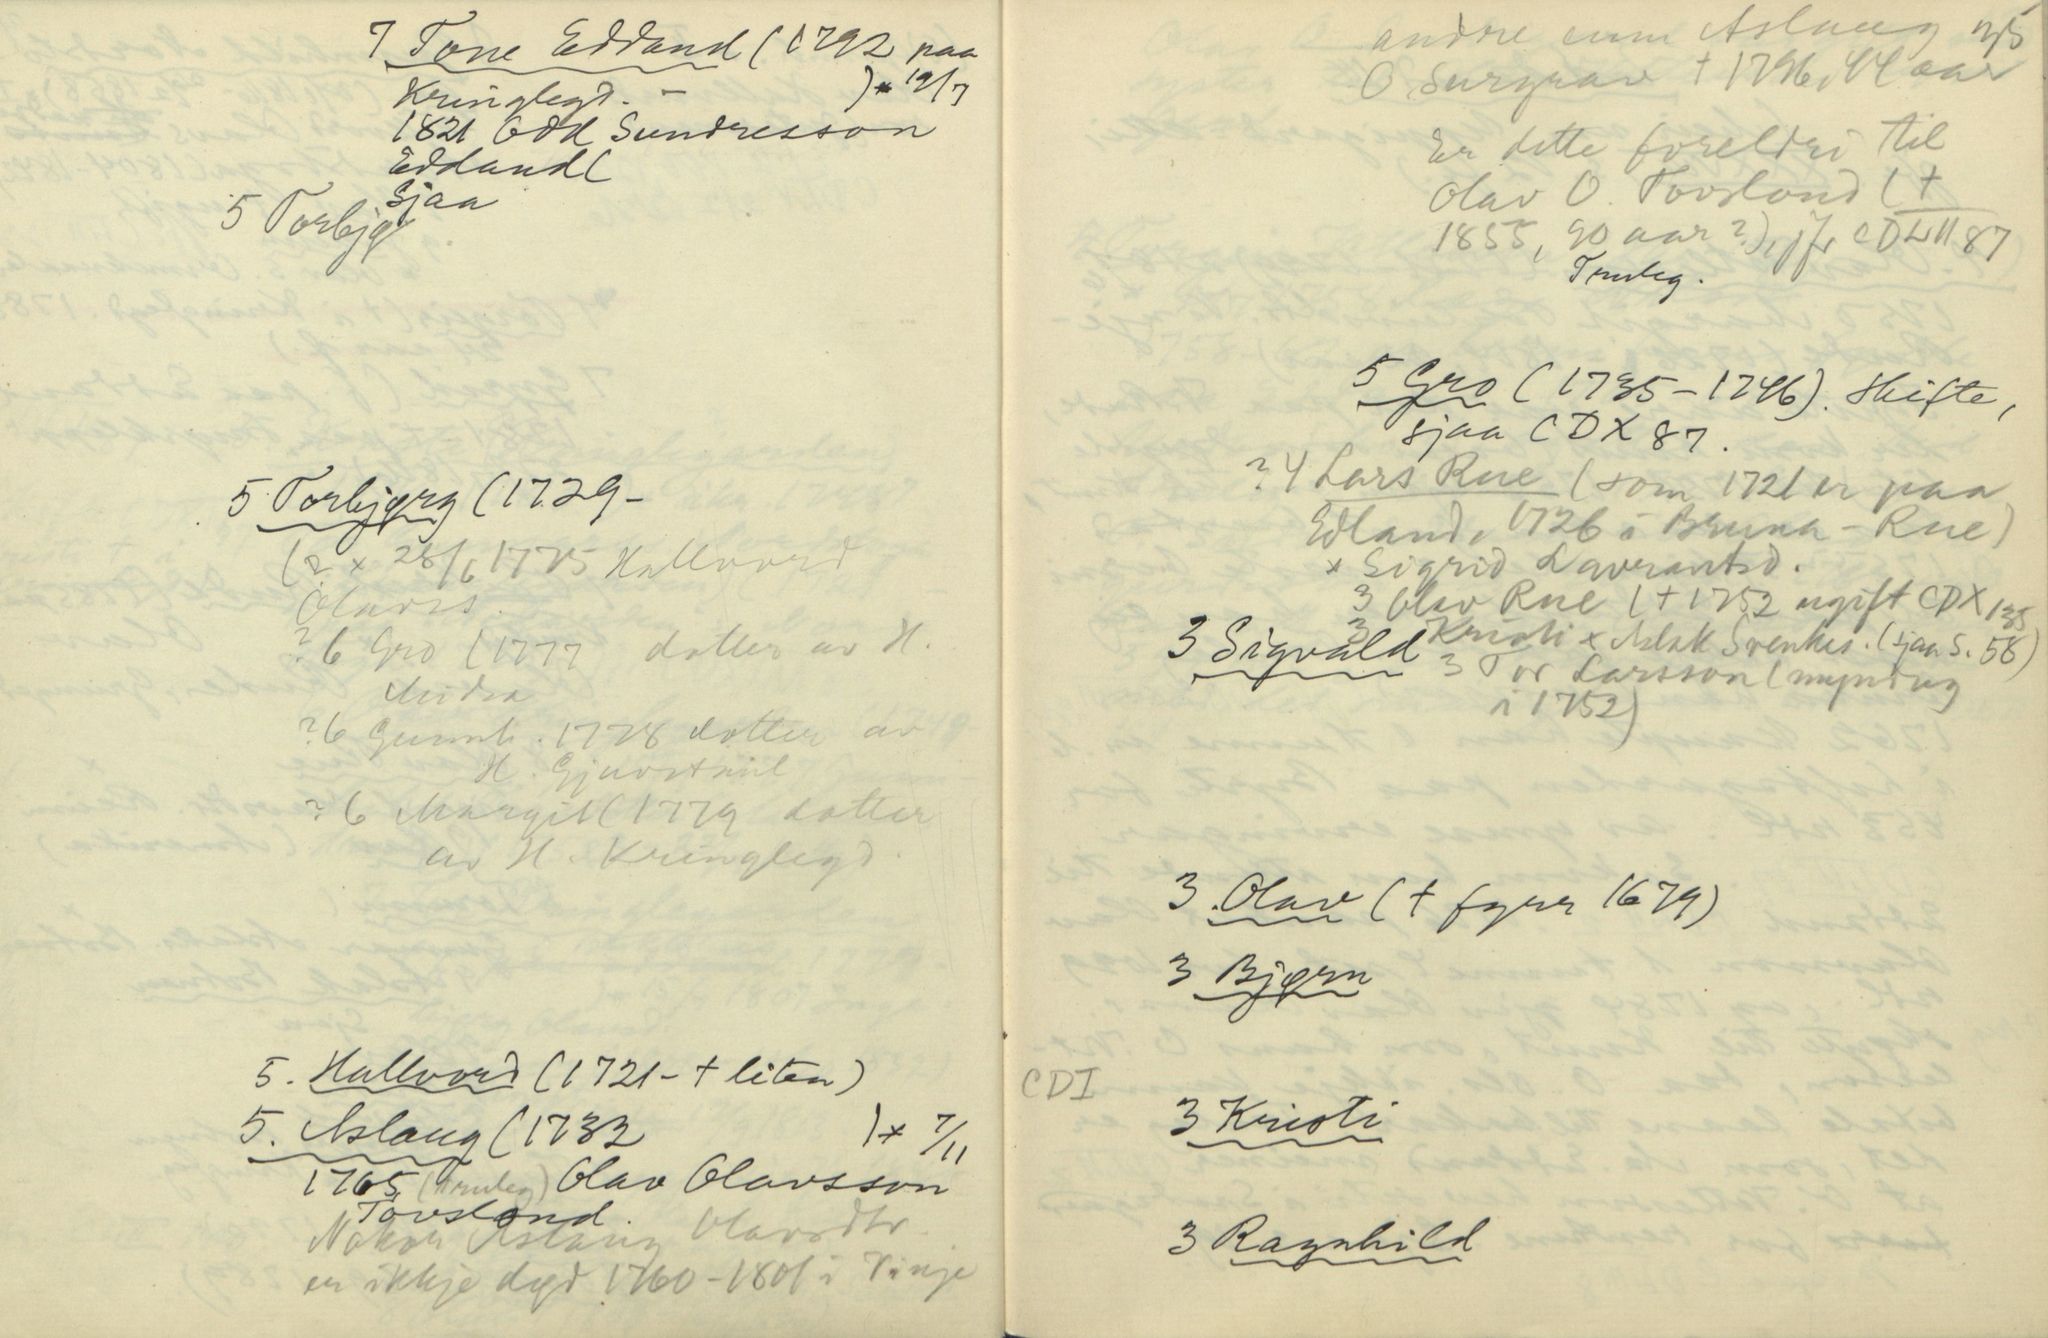 7 Tone Eddand (1792 paa
Kringlegd. - )x 19/7
1821 Odd Sundresson
Eddand (
Sjaa
5 Torbjø
5 Torbjørg (1729-
(2 x 28/6 1775 Hallvord
Olavss.
?6 Gro (1777 dotter av H.
Midra
?6 Gunnh. 1778 dotter av
H. Gjuvstuil
?6 Margit (1779 dotter
av H. Kringlegd.
5. Hallvord (1721- + liten)
5. Aslaug (1732 )x 7/11
1765 (truleg) Olav Olavsson
Tovslond.
Nokor Aslaug Olavsdtr.
er ikkje død 1760-1801 i Vinje
andre enn Aslaug
O. Surgrav + 1796, 44 aar
Er dette foreldri til
Olav O. Tovslond (+
1855, 90 aar?), jfr CDLII 87
Truleg.
5 Gro (1735-1746). Skifte,
sjaa CDX 87.
?4 Lars Rue (som 1721 er paa
Edland, 1726 i Bruna-Rue)
x Sigrid Lavrantsd.
3 Olav Rue (+1752 ugift CDX 135
3 Kristi x Aslak Svenkes. (sjaa s. 58)
3 Sigvald
3 Tor Larsson (myndug
i 1752)
3 Olav (+ fyrr 1679)
3 Bjørn
CDI
3 Kristi
3 Ragnhild